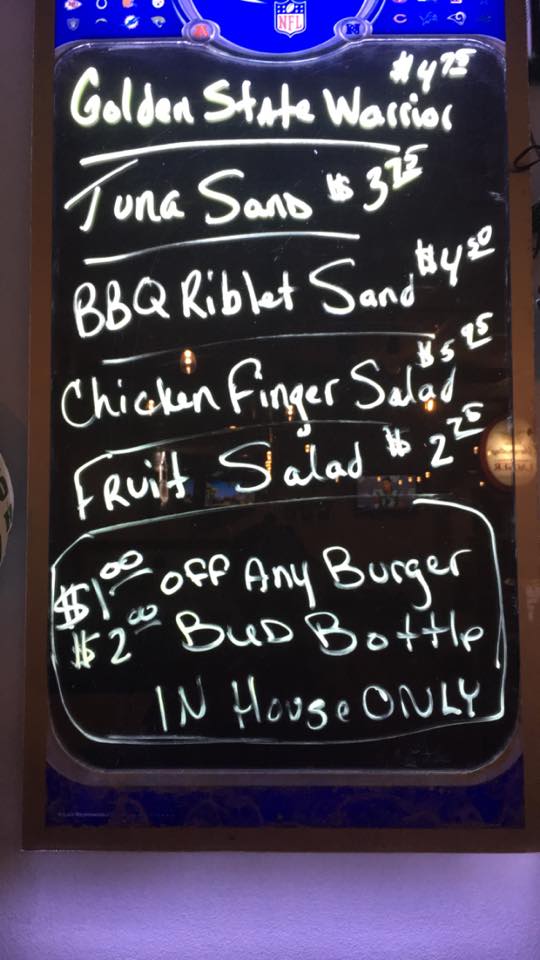 NFL
A N
Golden State Warrior $4.75
Tuna Sand $3.75
BBQ Riblet Sand $4.50
Chicken Finger Salad $5.95
Fruit Salad $2.75
$1.00 off Any Burger
$2.00 Bud Bottle
IN House ONLY